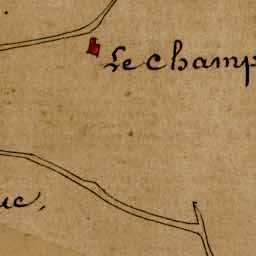 Le champ
uc,